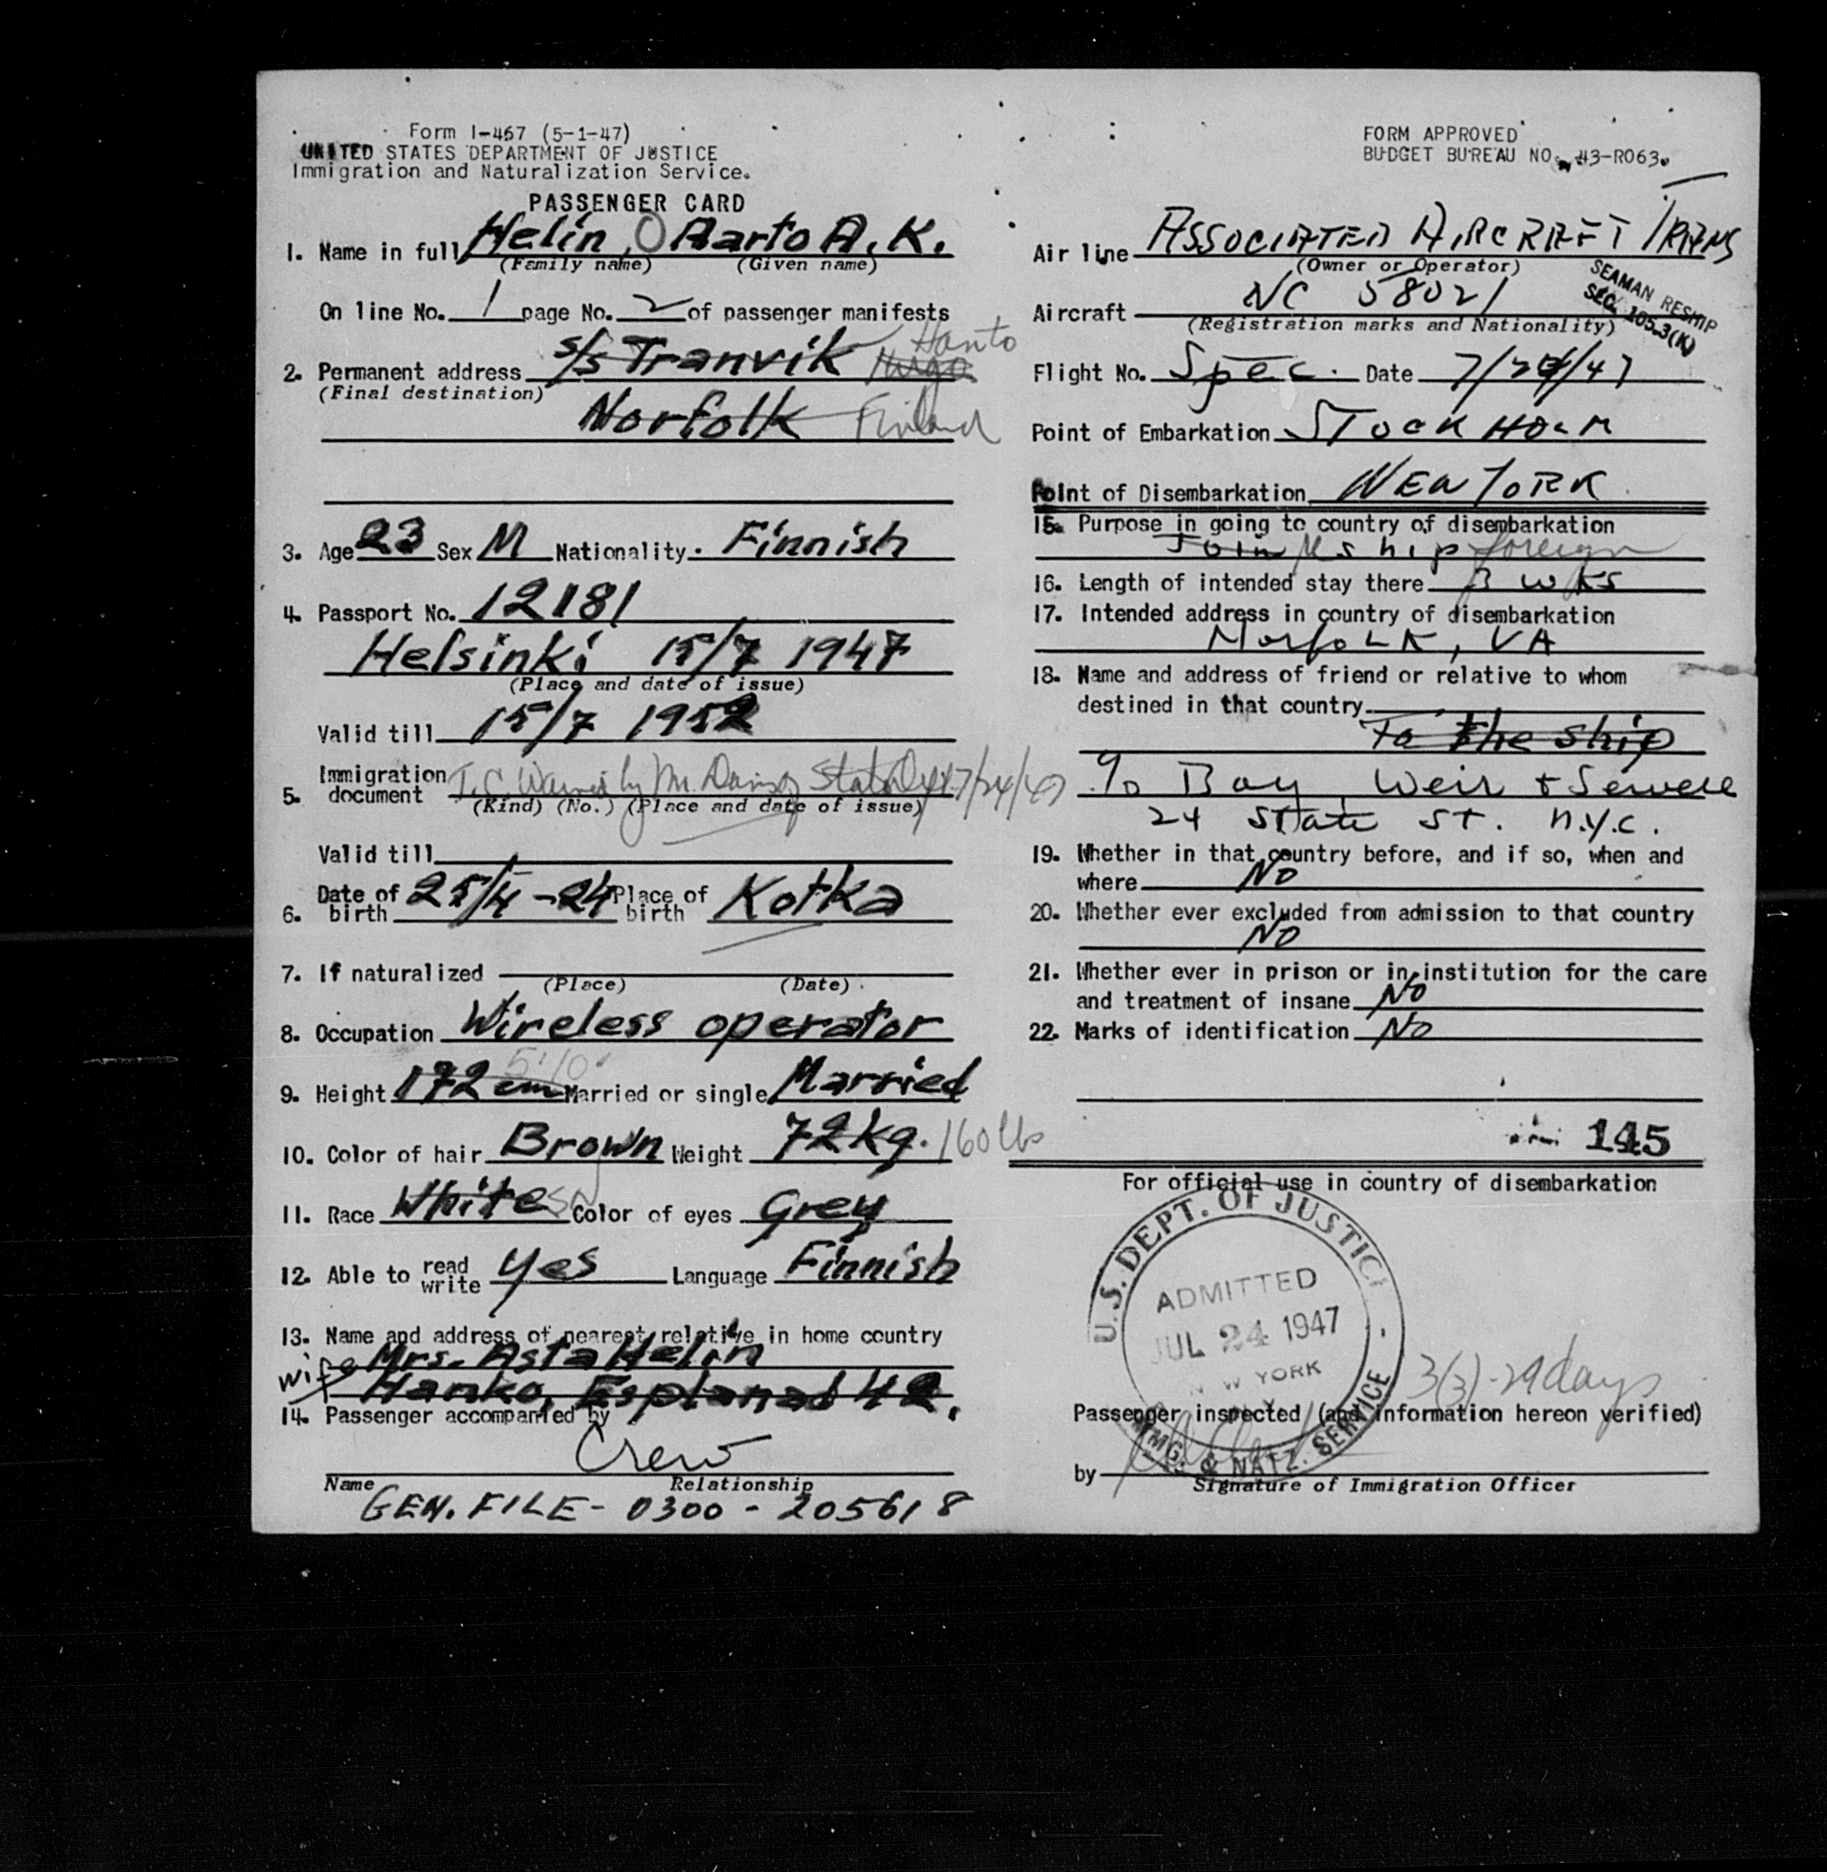 Form I-467 (5-1-47)
UNITED STATES DEPARTMENT OF JUSTICE
Immigration and Naturalization Service.
PASSENGER CARD
1. Name in full Helin, O Aarto A.K.
(Family name) (Given name)
On line No. 1 page No. 2 of passenger manifests
2. Permanent address s/s Tranvik Hanko
(Final destination)
Norfolk Finland
3. Age 23 Sex M Nationality. Finnish
4. Passport No. 12181
Helsinki 15/7 1947
(Place and date of issue)
Valid till 15/7 1952
5. Immigration document I.S. Waived by Mr. Davis of State Dept 7/24/47
(Kind) (No.) (Place and date of issue)
Valid till
6. Date of birth 25/4-24 Place of birth Kotka
7. If naturalized
(Place) (Date)
8. Occupation Wireless operator
5'10"
9. Height 172 cm Married or single Married
10. Color of hair Brown Weight 72 kg. 160 lbs
11. Race White Color of eyes Grey
12. Able to read write yes Language Finnish
13. Name and address of nearest relative in home country
Mrs. Asta Helin
wife Hanko, Esplanad 42.
14. Passenger accompanied by
Crew
Name Relationship
GEN. FILE - 0300 - 205618
FORM APPROVED
BUDGET BUREAU NO. 43-R063.
Air line ASSOCIATED AIRCRAFT TRANS
(Owner or Operator)
SEAMAN RESHIP
SEC. 105.3(K)
Aircraft NC 58021
(Registration marks and Nationality)
Flight No. Spec. Date 7/24/47
Point of Embarkation STOCKHOLM
Point of Disembarkation NEW YORK
15. Purpose in going to country of disembarkation
Join ship foreign
16. Length of intended stay there 3 WKS
17. Intended address in country of disembarkation
Norfolk, VA
18. Name and address of friend or relative to whom
destined in that country
To the ship
c/o Bay, Weir + Sewell
24 State St. N.Y.C.
19. Whether in that country before, and if so, when and
where No
20. Whether ever excluded from admission to that country
No
21. Whether ever in prison or in institution for the care
and treatment of insane No
22. Marks of identification No
145
For official use in country of disembarkation
U.S. DEPT. OF JUSTICE
ADMITTED
JUL 24 1947
N W YORK
N.Y.
IMMG. & NATZ. SERVICE
3(3)-29 days
Passenger inspected (and information hereon verified)
by
Signature of Immigration Officer